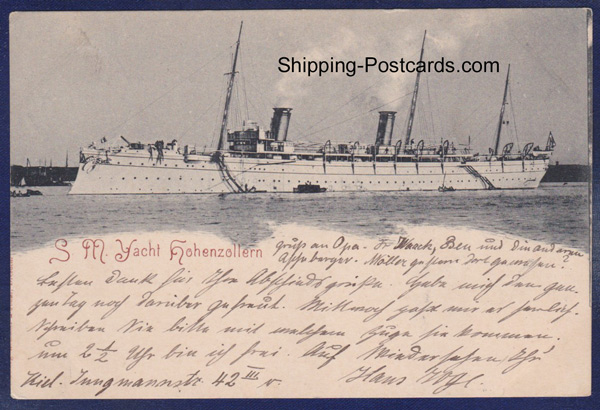 Shipping-Postcards.com
S. M. Yacht Hohenzollern
Gruß an Opa. Dr. Haeck, Ben und die anderen
Asseberger. Möller gestern dort gewesen.
Besten Dank für Ihre Abschiedsgrüße. Habe mich den gan-
zen tag noch darüber gefreut. Mittwoch paßt mir er herrlich.
Schreiben Sie bitte mit welchem Zuge sie kommen.
um 2 1/2 Uhr bin ich frei. Auf Wiedersehen Ihr
Kiel. Jungmannstr. 42 III r. Hans